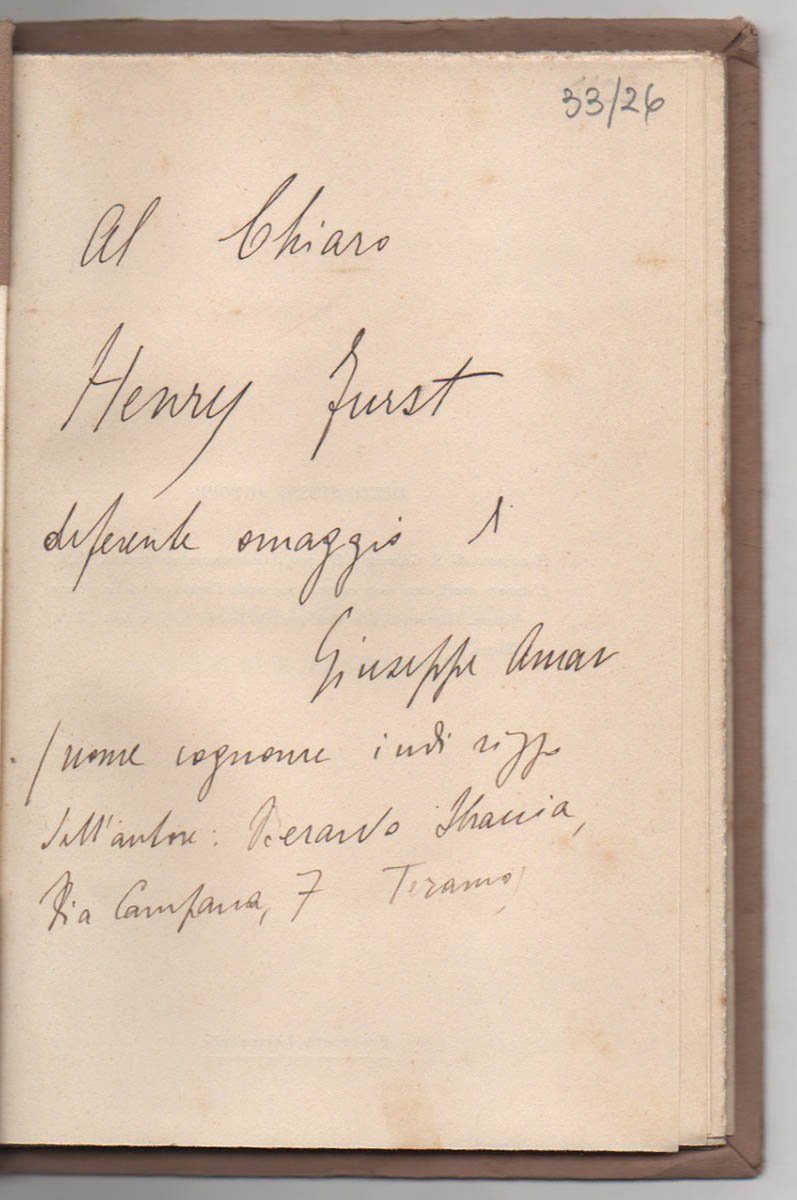 33/26
Al Chiaro
Henry Furst
deferente omaggio d
Giuseppe Amar
(nome cognome indirizzo
dell'autore: Berardo
Via Campana, 7 Teramo)